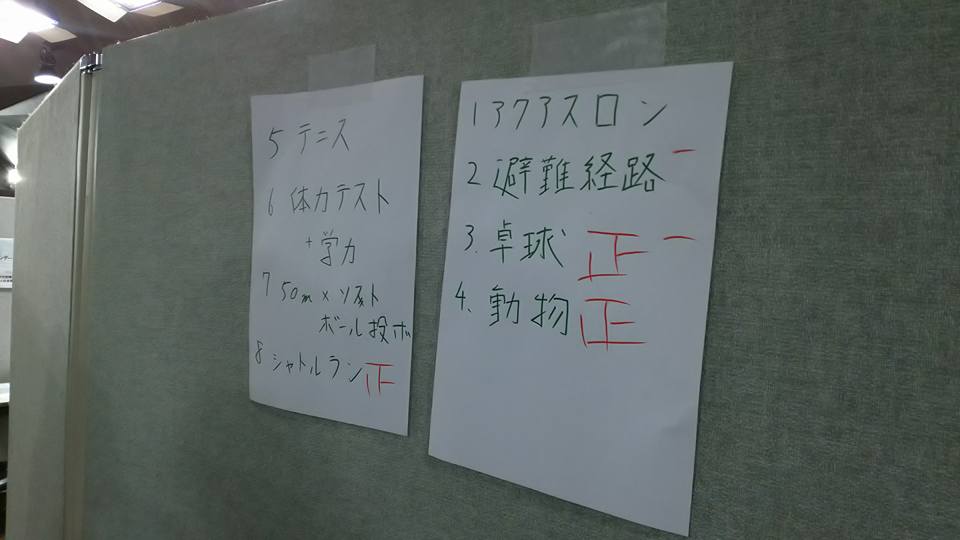 5 テニス
6 体力テスト
+学力
7 50m×ソフト
ボール投げ
8 シャトルラン 正
1 アクアスロン
2 避難経路 一
3. 卓球 正 一
4. 動物 正